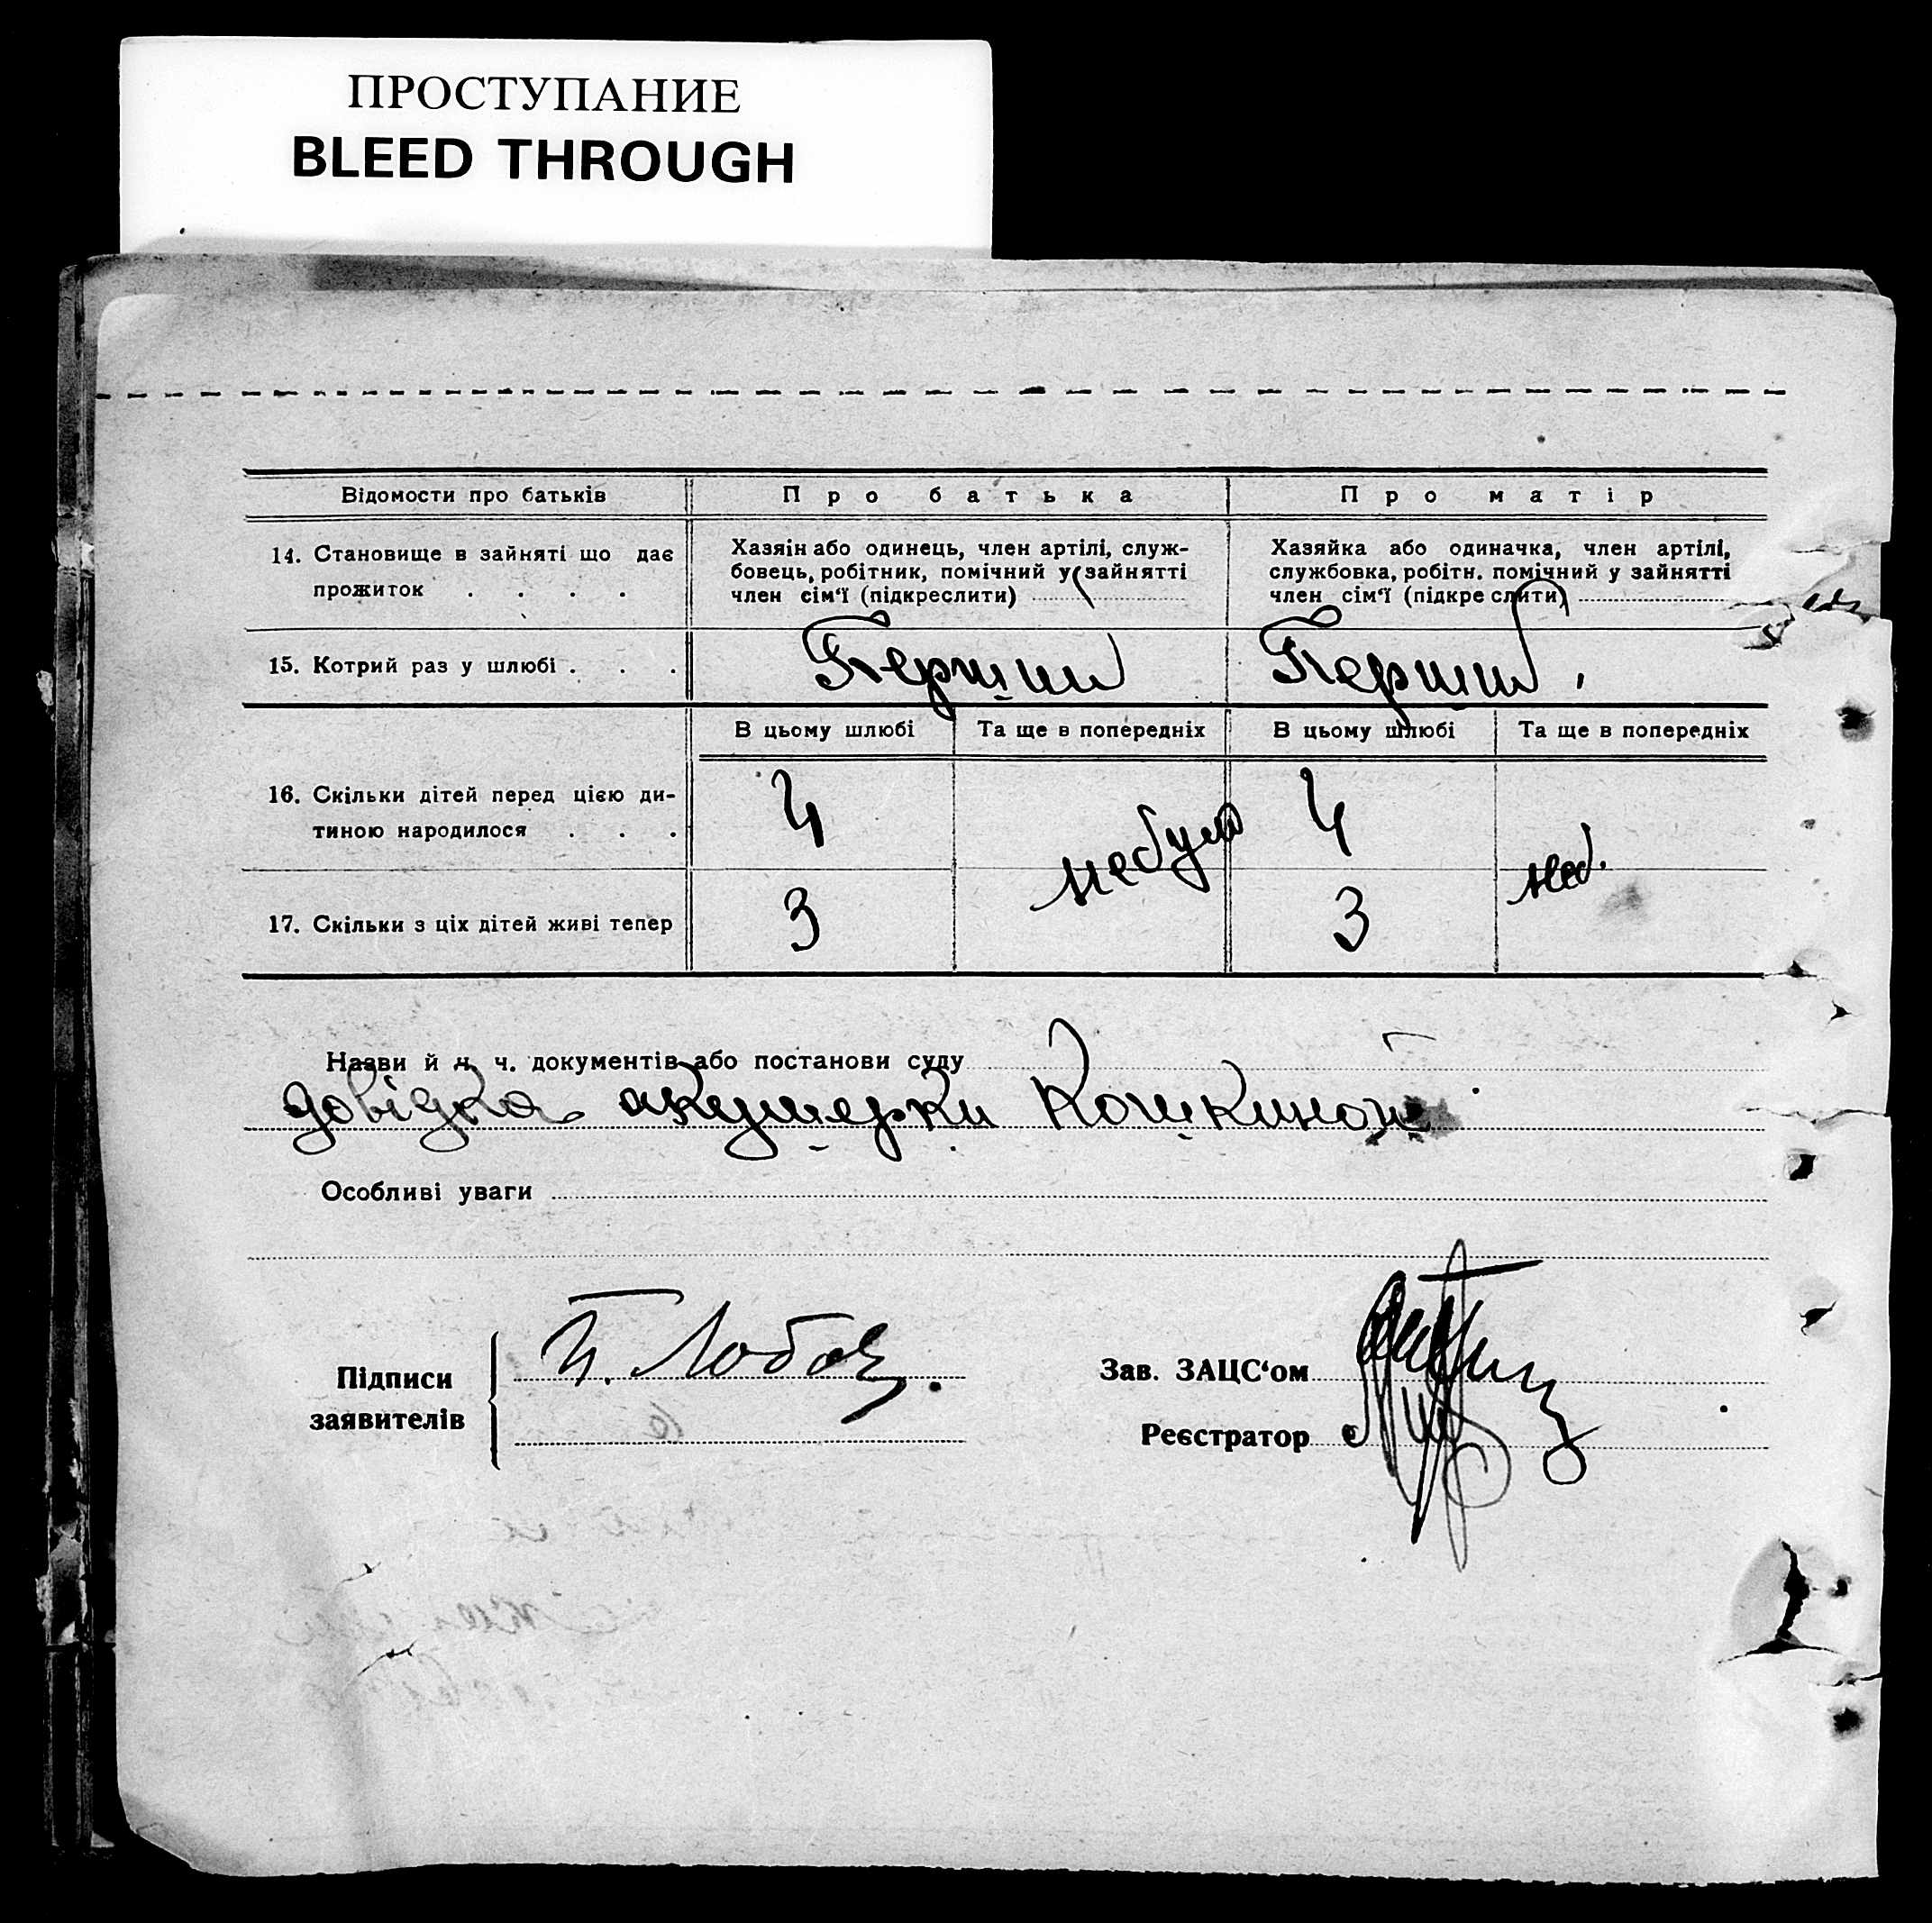 ПРОСТУПАНИЕ
BLEED THROUGH
Відомости про батьків
Про батька
Про матір
14. Становище в зайняті що дає
прожиток . . . .
Хазяїн або одинець, член артілі, служ-
бовець, робітник, помічний у зайнятті
член сім‘ї (підкреслити)
Хазяйка або одиначка, член артілі,
службовка, робітн. помічний у зайнятті
член сім‘ї (підкреслити)
15. Котрий раз у шлюбі . . .
Перший
Перший
В цьому шлюбі
Та ще в попередніх
В цьому шлюбі
Та ще в попередніх
16. Скільки дітей перед цією ди-
тиною народилося . . .
4
небуло
4
неб.
17. Скільки з ціх дітей живі тепер
3
3
Назви й ч. ч. документів або постанови суду
довідка акушерки Кошкиной
Особливі уваги
Підписи
заявителів
Зав. ЗАЦС‘ом
Реєстратор